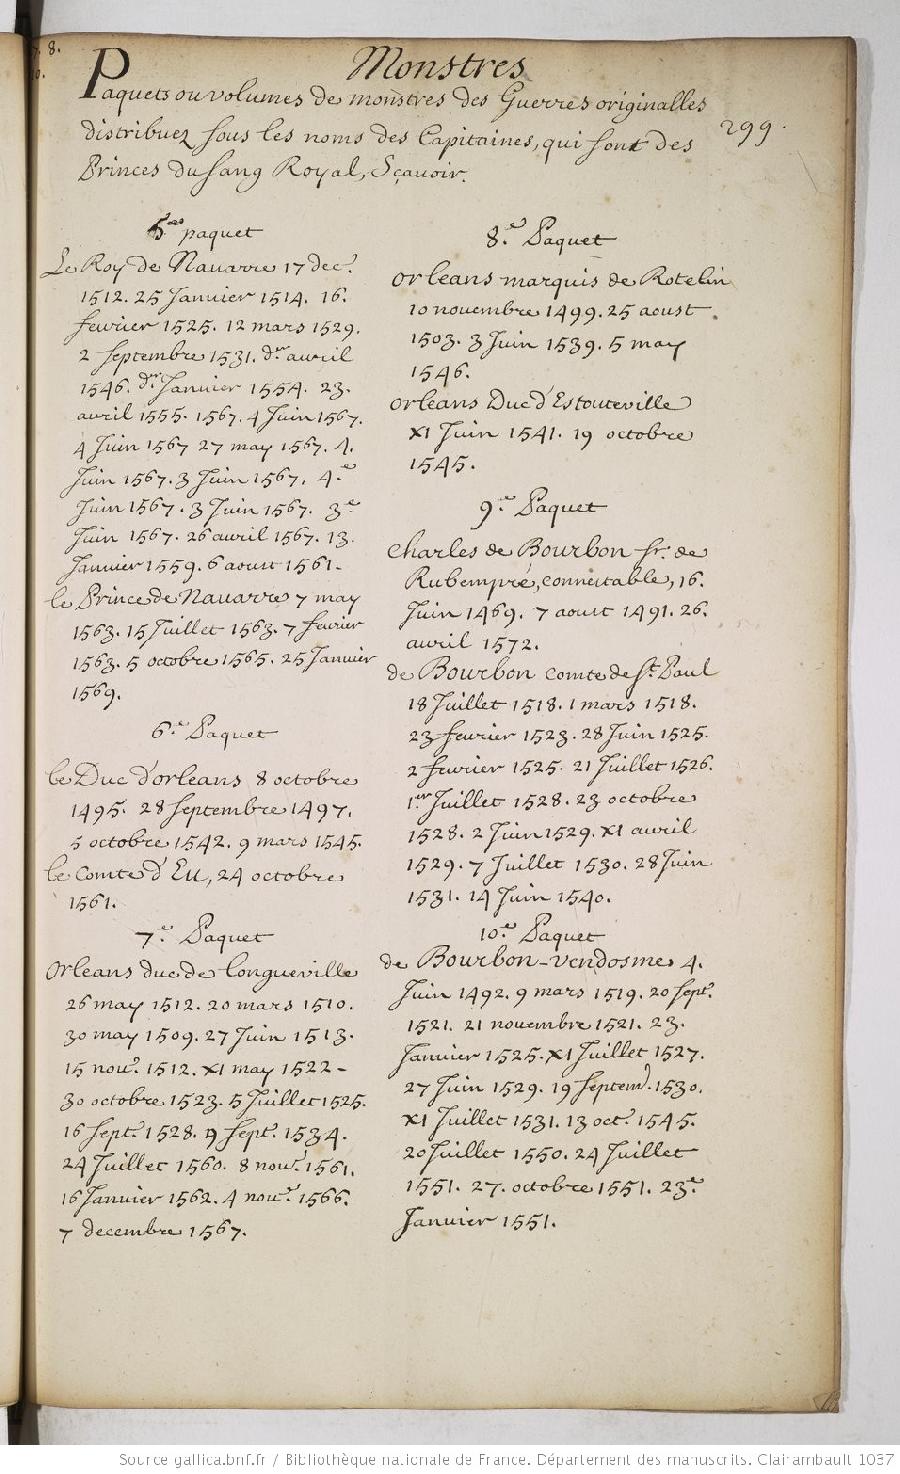 Monstres
Paquets ou volumes de monstres des Guerres originalles
distribuez sous les noms des Capitaines, qui sont des
299.
Princes du sang Royal, Sçavoir.
5.me paquet
Le Roy de Navarre 17 dec.e
1512. 25 Janvier 1514. 16.
fevrier 1525. 12 mars 1529.
2 septembre 1531. d.er avril
1546. d.er Janvier 1554. 23.
avril 1555. 1567. 4 Juin 1567.
4 Juin 1567 27 may 1567. 4.
Juin 1567. 3 Juin 1567. 4.e
Juin 1567. 3 Juin 1567. 3.e
Juin 1567. 26 avril 1567. 13.
Janvier 1559. 6 aoust 1561.
le Prince de Navarre 7 may
1563. 15 Juillet 1563. 7 fevrier
1563. 5 octobre 1565. 25 Janvier
1569.
6.e Paquet
le Duc d'orleans 8 octobre
1495. 28 septembre 1497.
5 octobre 1542. 9 mars 1545.
le Comte d'Eu, 24 octobre
1561.
7.e Paquet
Orleans duc de Longueville
26 may 1512. 20 mars 1510.
30 may 1509. 27 Juin 1513.
15 nov.e 1512. XI may 1522-
30 octobre 1523. 5 Juillet 1525.
16 sept.e 1528. 9 sept.e 1534.
24 Juillet 1560. 8 nov.e 1561.
16 Janvier 1562. 4 nov.e 1566.
7 decembre 1567.
8.e Paquet
Orleans marquis de Rotelin
10 novembre 1499. 25 aoust
1503. 3 Juin 1539. 5 may
1546.
Orleans Duc d'Estouteville
XI Juin 1541. 19 octobre
1545.
9.e Paquet
Charles de Bourbon sr. de
Rubempré, connestable, 16.
Juin 1469. 7 aoust 1491. 26.
avril 1572.
de Bourbon comte de St. Paul
18 Juillet 1518. 1 mars 1518.
23 fevrier 1523. 28 Juin 1525.
2 fevrier 1525. 21 Juillet 1526.
1.er Juillet 1528. 23 octobre
1528. 2 Juin 1529. XI avril
1529. 7 Juillet 1530. 28 Juin
1531. 14 Juin 1540.
10.e Paquet
de Bourbon-Vendosme 4.
Juin 1492. 9 mars 1519. 20 sept.e
1521. 21 novembre 1521. 23.
Janvier 1525. XI Juillet 1527.
27 Juin 1529. 19 septemb. 1530.
XI Juillet 1531. 13 oct.e 1545.
20 Juillet 1550. 24 Juillet
1551. 27. octobre 1551. 23.e
Janvier 1551.
Source gallica.bnf.fr / Bibliothèque nationale de France. Département des manuscrits. Clairambault 1037